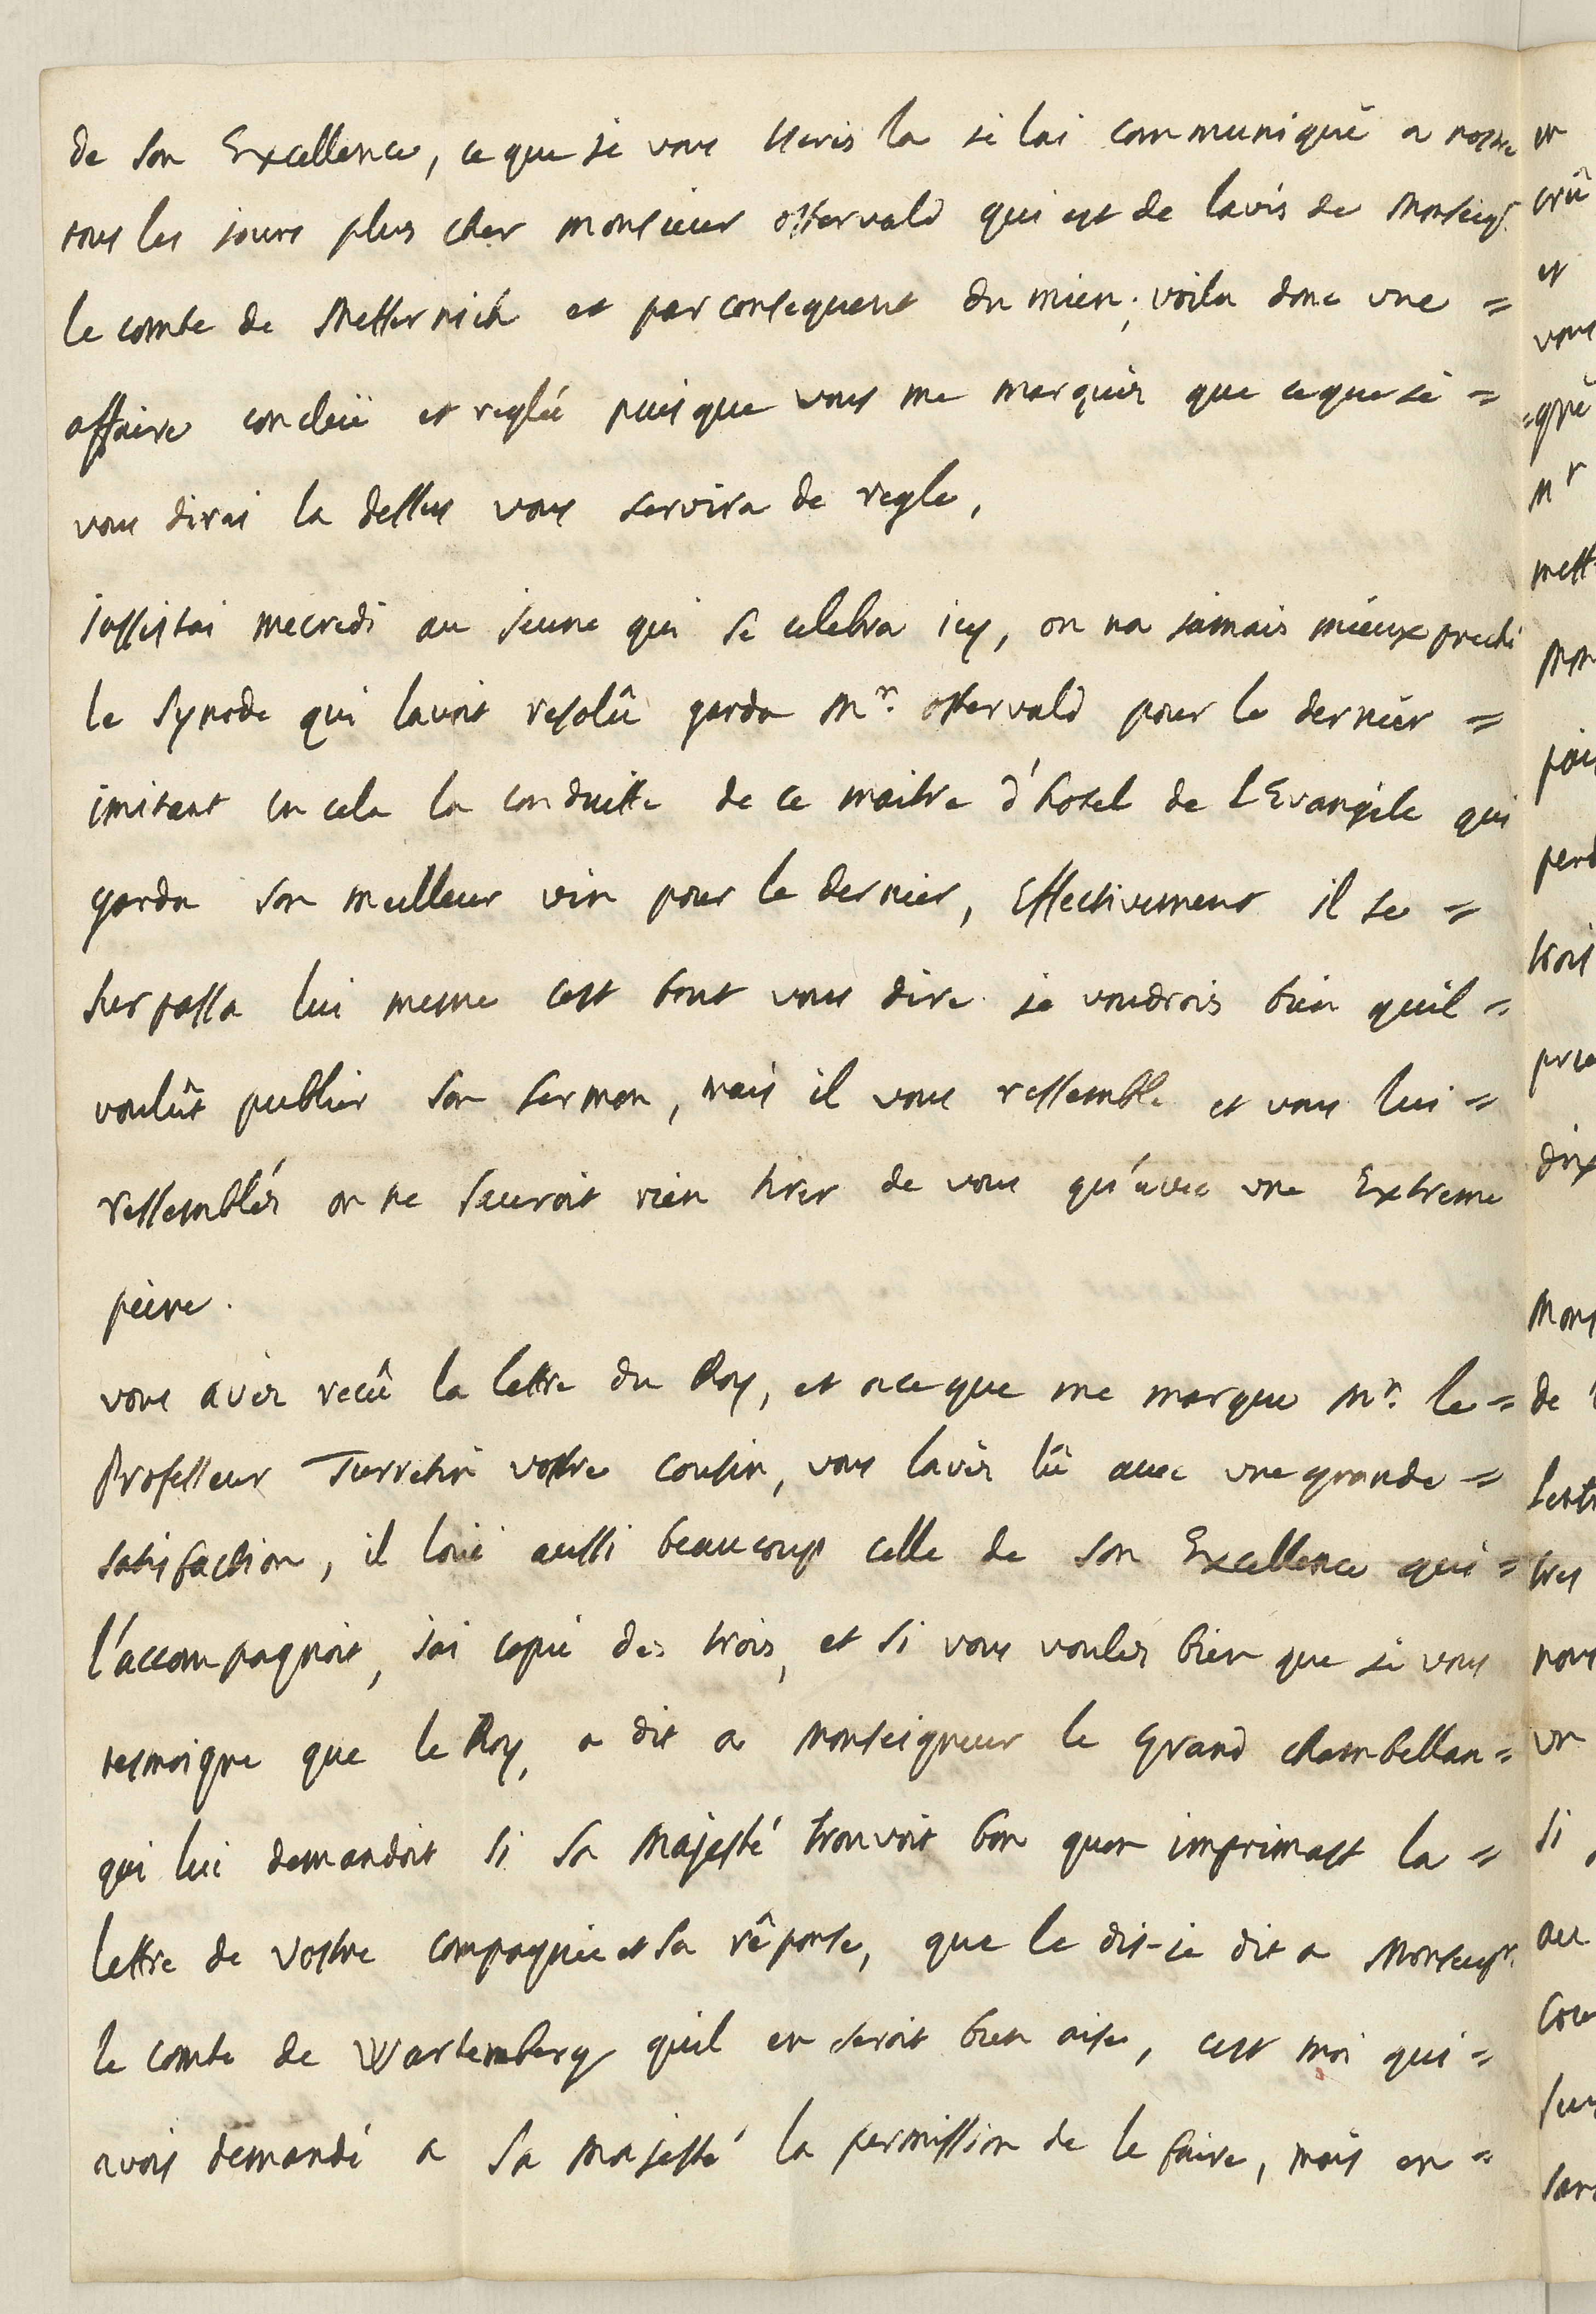 de son Excellence, ce que je vous Ecris la je lai communiqué a nostre
tous les jours plus cher monsieur ostervald qui est de lavis de Monseigr.
le comte de Metternich et par consequent du mien; voila donc une =
affaire concluë et reglée puis que vous me marqués que ce que je =
vous dirai la dessus vous servira de regle,
jassistai mecredi au jeune qui se celebra icy, on na jamais mieux preché
le Synode qui lavoit resolû garda Mr. ostervald pour le dernier =
imitant en cela la conduitte de ce maitre d'hotel de l'Evangile qui
garda son meilleur vin pour le dernier, Effectivement il se =
surpassa lui mesme cest tout vous dire je voudrois bien quil =
voulût publier son sermon, mais il vous ressemble et vous lui =
ressemblés on ne scauroit rien tirer de vous qu'avec une Extreme
peine.
vous avés recû la lettre du Roy, et a ce que me marque Mr. le =
Professeur Turretin vostre cousin, vous lavés lû avec une grande =
satisfaction, il loüe aussi beaucoup celle de son Excellence qui =
l'accompagnoit, jai copie des trois, et si vous voulés bien que je vous
tesmoigne que le Roy, a dit a Monseigneur le grand chambellan =
qui lui demandoit si sa Majesté trouvoit bon quon imprimast la =
lettre de vostre compagnie et sa rêponse, que le dis-je dit a Monseigr.
le comte de Wartemberg quil en seroit bien aise, cest moi qui =
avois demandé a sa Majesté la permission de le faire, mais en =